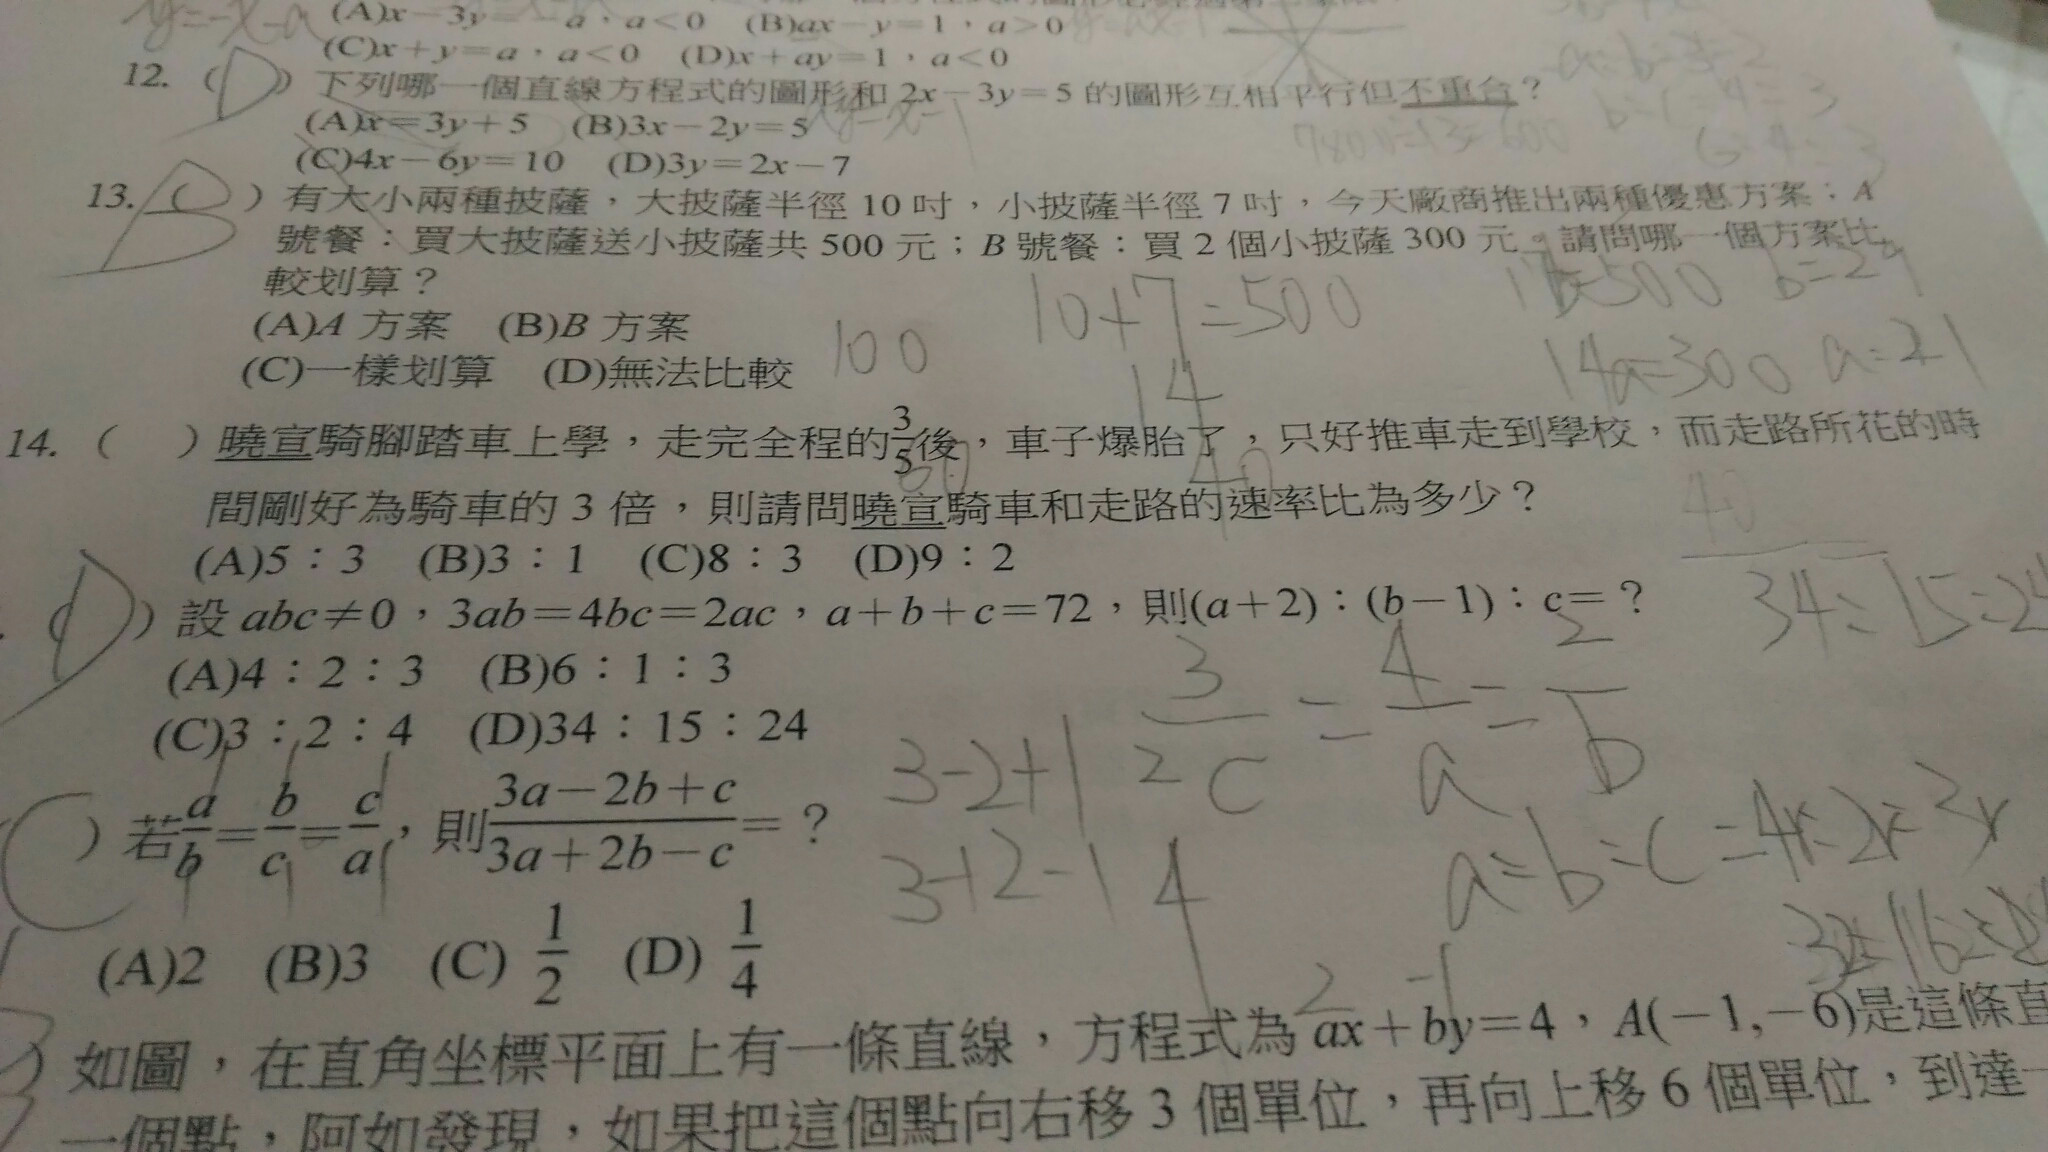 (A)x－3y＝－a，a＜0 (B)ax－y＝1，a＞0
(C)x＋y＝a，a＜0 (D)x＋ay＝1，a＜0
12. (D) 下列哪一個直線方程式的圖形和 2x－3y＝5 的圖形互相平行但不重合？
(A)x＝3y＋5 (B)3x－2y＝5
(C)4x－6y＝10 (D)3y＝2x－7
7800÷13=600
13. (B) 有大小兩種披薩，大披薩半徑 10 吋，小披薩半徑 7 吋，今天廠商推出兩種優惠方案：A
號餐：買大披薩送小披薩共 500 元；B 號餐：買 2 個小披薩 300 元。請問哪一個方案比
較划算？
(A)A 方案 (B)B 方案
(C)一樣划算 (D)無法比較
100
10+7=500
17b=500 b=29
14a=300 a=21
14
14. ( ) 曉宣騎腳踏車上學，走完全程的3/5後，車子爆胎了，只好推車走到學校，而走路所花的時
間剛好為騎車的 3 倍，則請問曉宣騎車和走路的速率比為多少？
40
(A)5：3 (B)3：1 (C)8：3 (D)9：2
(D) 設 abc≠0，3ab＝4bc＝2ac，a＋b＋c＝72，則(a＋2)：(b－1)：c＝？
34:15:24
(A)4：2：3 (B)6：1：3
(C)3：2：4 (D)34：15：24
3/2c = 4/a = 2/b
(C) 若a/b＝b/c＝c/a，則3a－2b＋c/3a＋2b－c＝？
3-2+1 2
3+2-1 4
a:b:c=4r:2r:3r
(A)2 (B)3 (C) 1/2 (D) 1/4
2 -1
如圖，在直角坐標平面上有一條直線，方程式為 ax＋by＝4，A(－1,－6)是這條直
一個點，阿如發現，如果把這個點向右移 3 個單位，再向上移 6 個單位，到達一